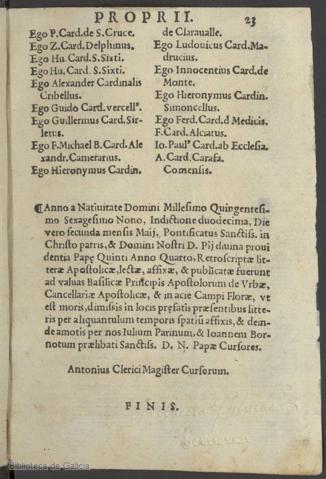 PROPRII. 23
Ego P. Card. de S. Cruce.
Ego Z. Card. Delphinus.
Ego Hu. Card. S. Sixti.
Ego Hu. Card. S. Sixti.
Ego Alexander Cardinalis
Cribellus.
Ego Guido Card. vercellˢ.
Ego Guillermus Card. Sir-
letus.
Ego F. Michael B. Card. Ale
xandr. Camerarius.
Ego Hieronymus Cardin.
de Claraualle.
Ego Ludouicus Card. Ma-
drucius.
Ego Innocentius Card. de
Monte.
Ego Hieronymus Cardin.
Simoncellus.
Ego Ferd. Card. d Medicis.
F. Card. Alciatus.
Io. Paulˢ Card. ab Ecclesia.
A. Card. Carafa.
Comensis.
¶Anno a Natiuitate Domini Millesimo Quingentesi-
mo Sexagesimo Nono, Indictione duodecima, Die
vero secunda mensis Maij, Pontificatus Sanctiss. in
Christo patris, & Domini Nostri D. Pij diuina proui
dentia Papę Quinti Anno Quarto, Retroscriptæ lit-
teræ Apostolicæ, lectæ, affixæ, & publicatæ fuerunt
ad valuas Basilicæ Prīcipis Apostolorum de Vrbæ,
Cancellariæ Apostolicæ, & in acie Campi Floræ, vt
est moris, dimissis in locis pręfatis præsentibus litte-
ris per aliquantulum temporis spatiū affixis, & dein-
de amotis per nos Iulium Parinum, & Ioannem Bor-
notum prælibati Sanctiss. D. N. Papæ Cursores.
Antonius Clerici Magister Cursorum.
FINIS.
Biblioteca de Galicia